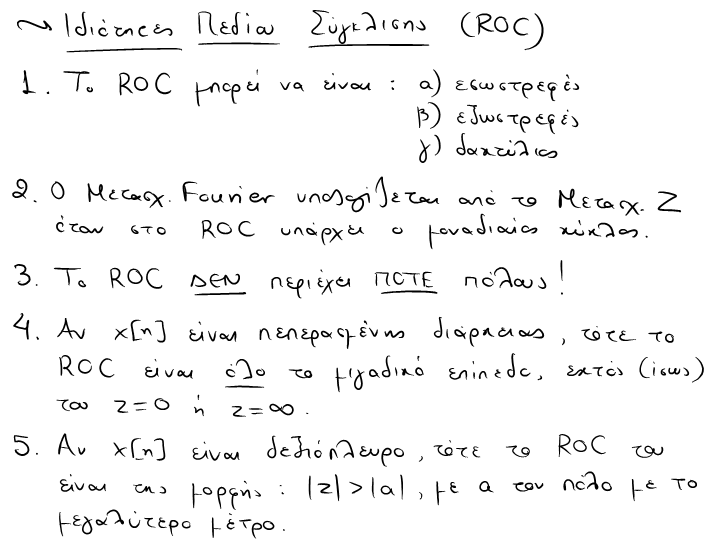 ~> Ιδιότητες Πεδίου Σύγκλισης (ROC)
1. Το ROC μπορεί να είναι : α) εσωστρεφές
β) εξωστρεφές
γ) δακτύλιος
2. Ο Μετασχ. Fourier υπολογίζεται από το Μετασχ. Z
όταν στο ROC υπάρχει ο μοναδιαίος κύκλος.
3. Το ROC ΔΕΝ περιέχει ΠΟΤΕ πόλους!
4. Αν x[n] είναι πεπερασμένης διάρκειας, τότε το
ROC είναι όλο το μιγαδικό επίπεδο, εκτός (ίσως)
του z=0 ή z=∞.
5. Αν x[n] είναι δεξιόπλευρο, τότε το ROC του
είναι της μορφής : |z|>|a|, με a τον πόλο με το
μεγαλύτερο μέτρο.